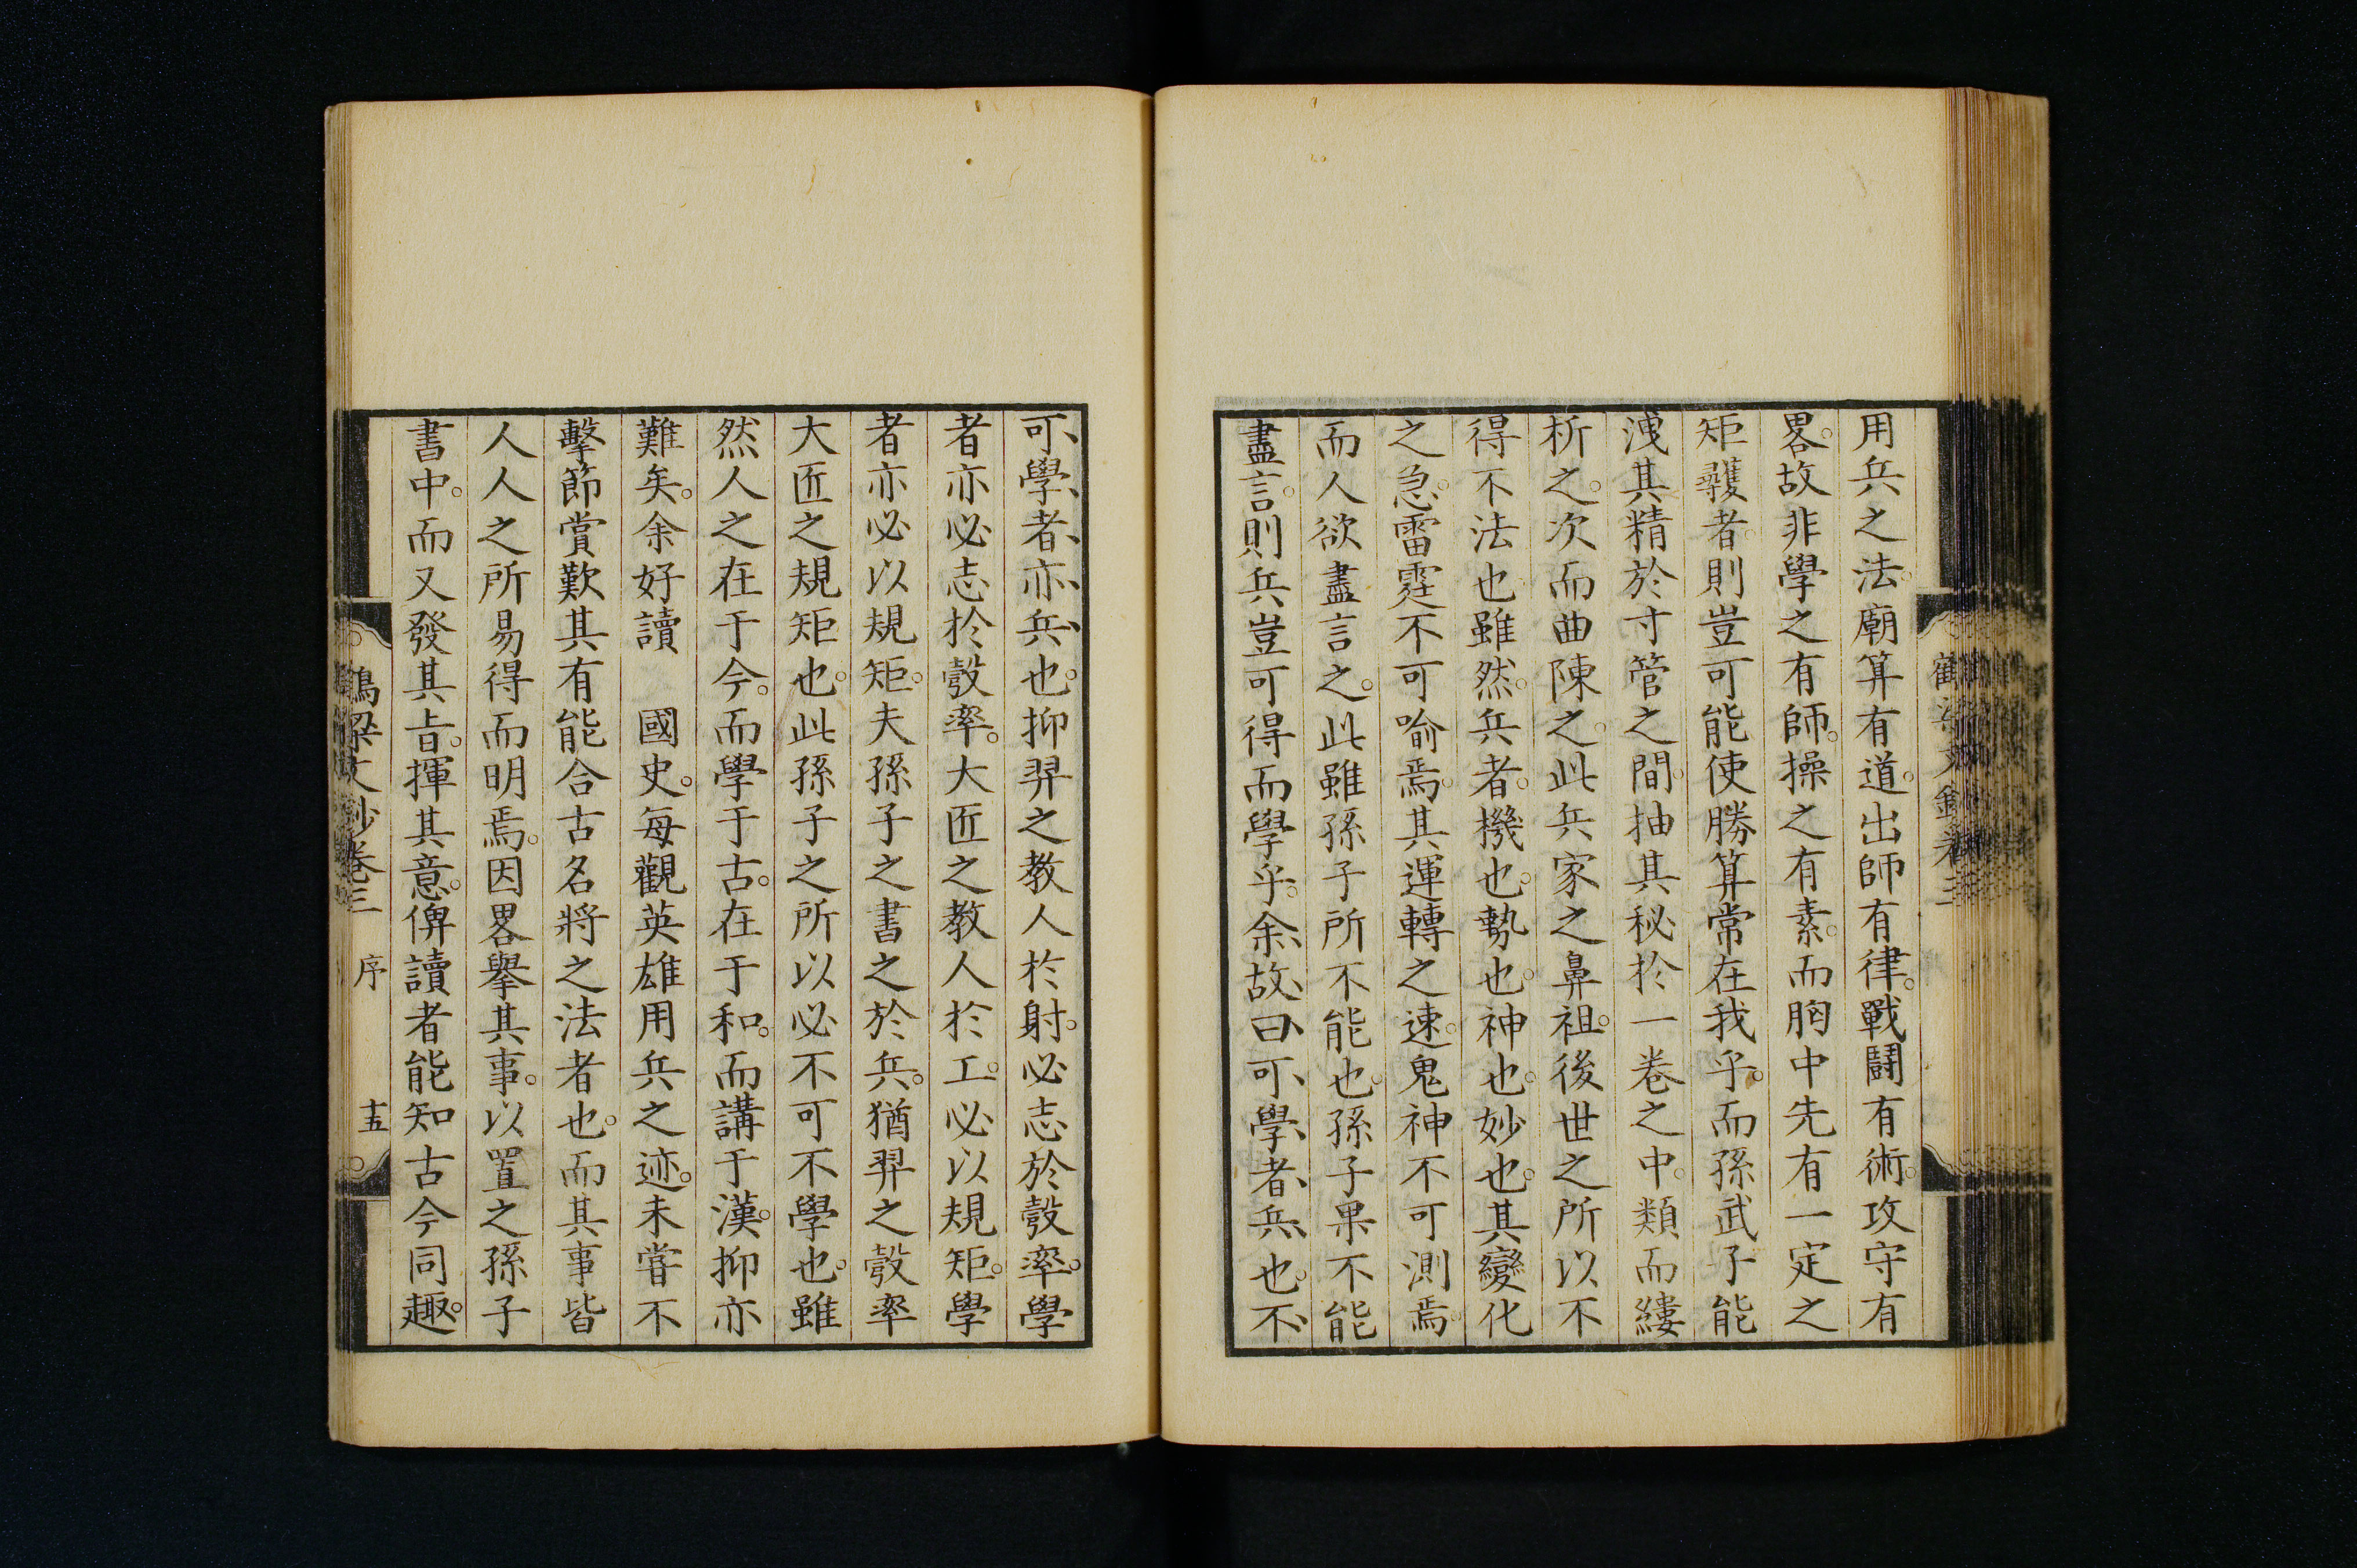 用兵之法。廟算有道。出師有律。戰鬪有術。攻守有
畧。故非學之有師。操之有素。而胸中先有一定之
矩矱者。則豈可能使勝算常在我乎。而孫武子能
洩其精於寸管之間。抽其秘於一卷之中。類而縷
析之。次而曲陳之。此兵家之鼻祖。後世之所以不
得不法也。雖然。兵者。機也。勢也。神也。妙也。其變化
之急。雷霆不可喻焉。其運轉之速。鬼神不可測焉。
而人欲盡言之。此雖孫子所不能也。孫子果不能
盡言。則兵豈可得而學乎。余、故、曰、可、學、者、兵、也。不、
可、學、者、亦、兵、也。抑羿之教人於射。必志於彀率。學
者亦必志於彀率。大匠之教人於工。必以規矩。學
者亦必以規矩。夫孫子之書之於兵。猶羿之彀率
大匠之規矩也。此孫子之所以必不可不學也。雖
然人之在于今。而學于古。在于和。而講于漢。抑亦
難矣。余好讀　國史。每觀英雄用兵之迹。未嘗不
擊節賞歎其有能合古名將之法者也。而其事皆
人人之所易得而明焉。因畧擧其事。以置之孫子
書中。而又發其旨。揮其意。俾讀者能知古今同趣。
鶴梁文鈔卷三　序　十五